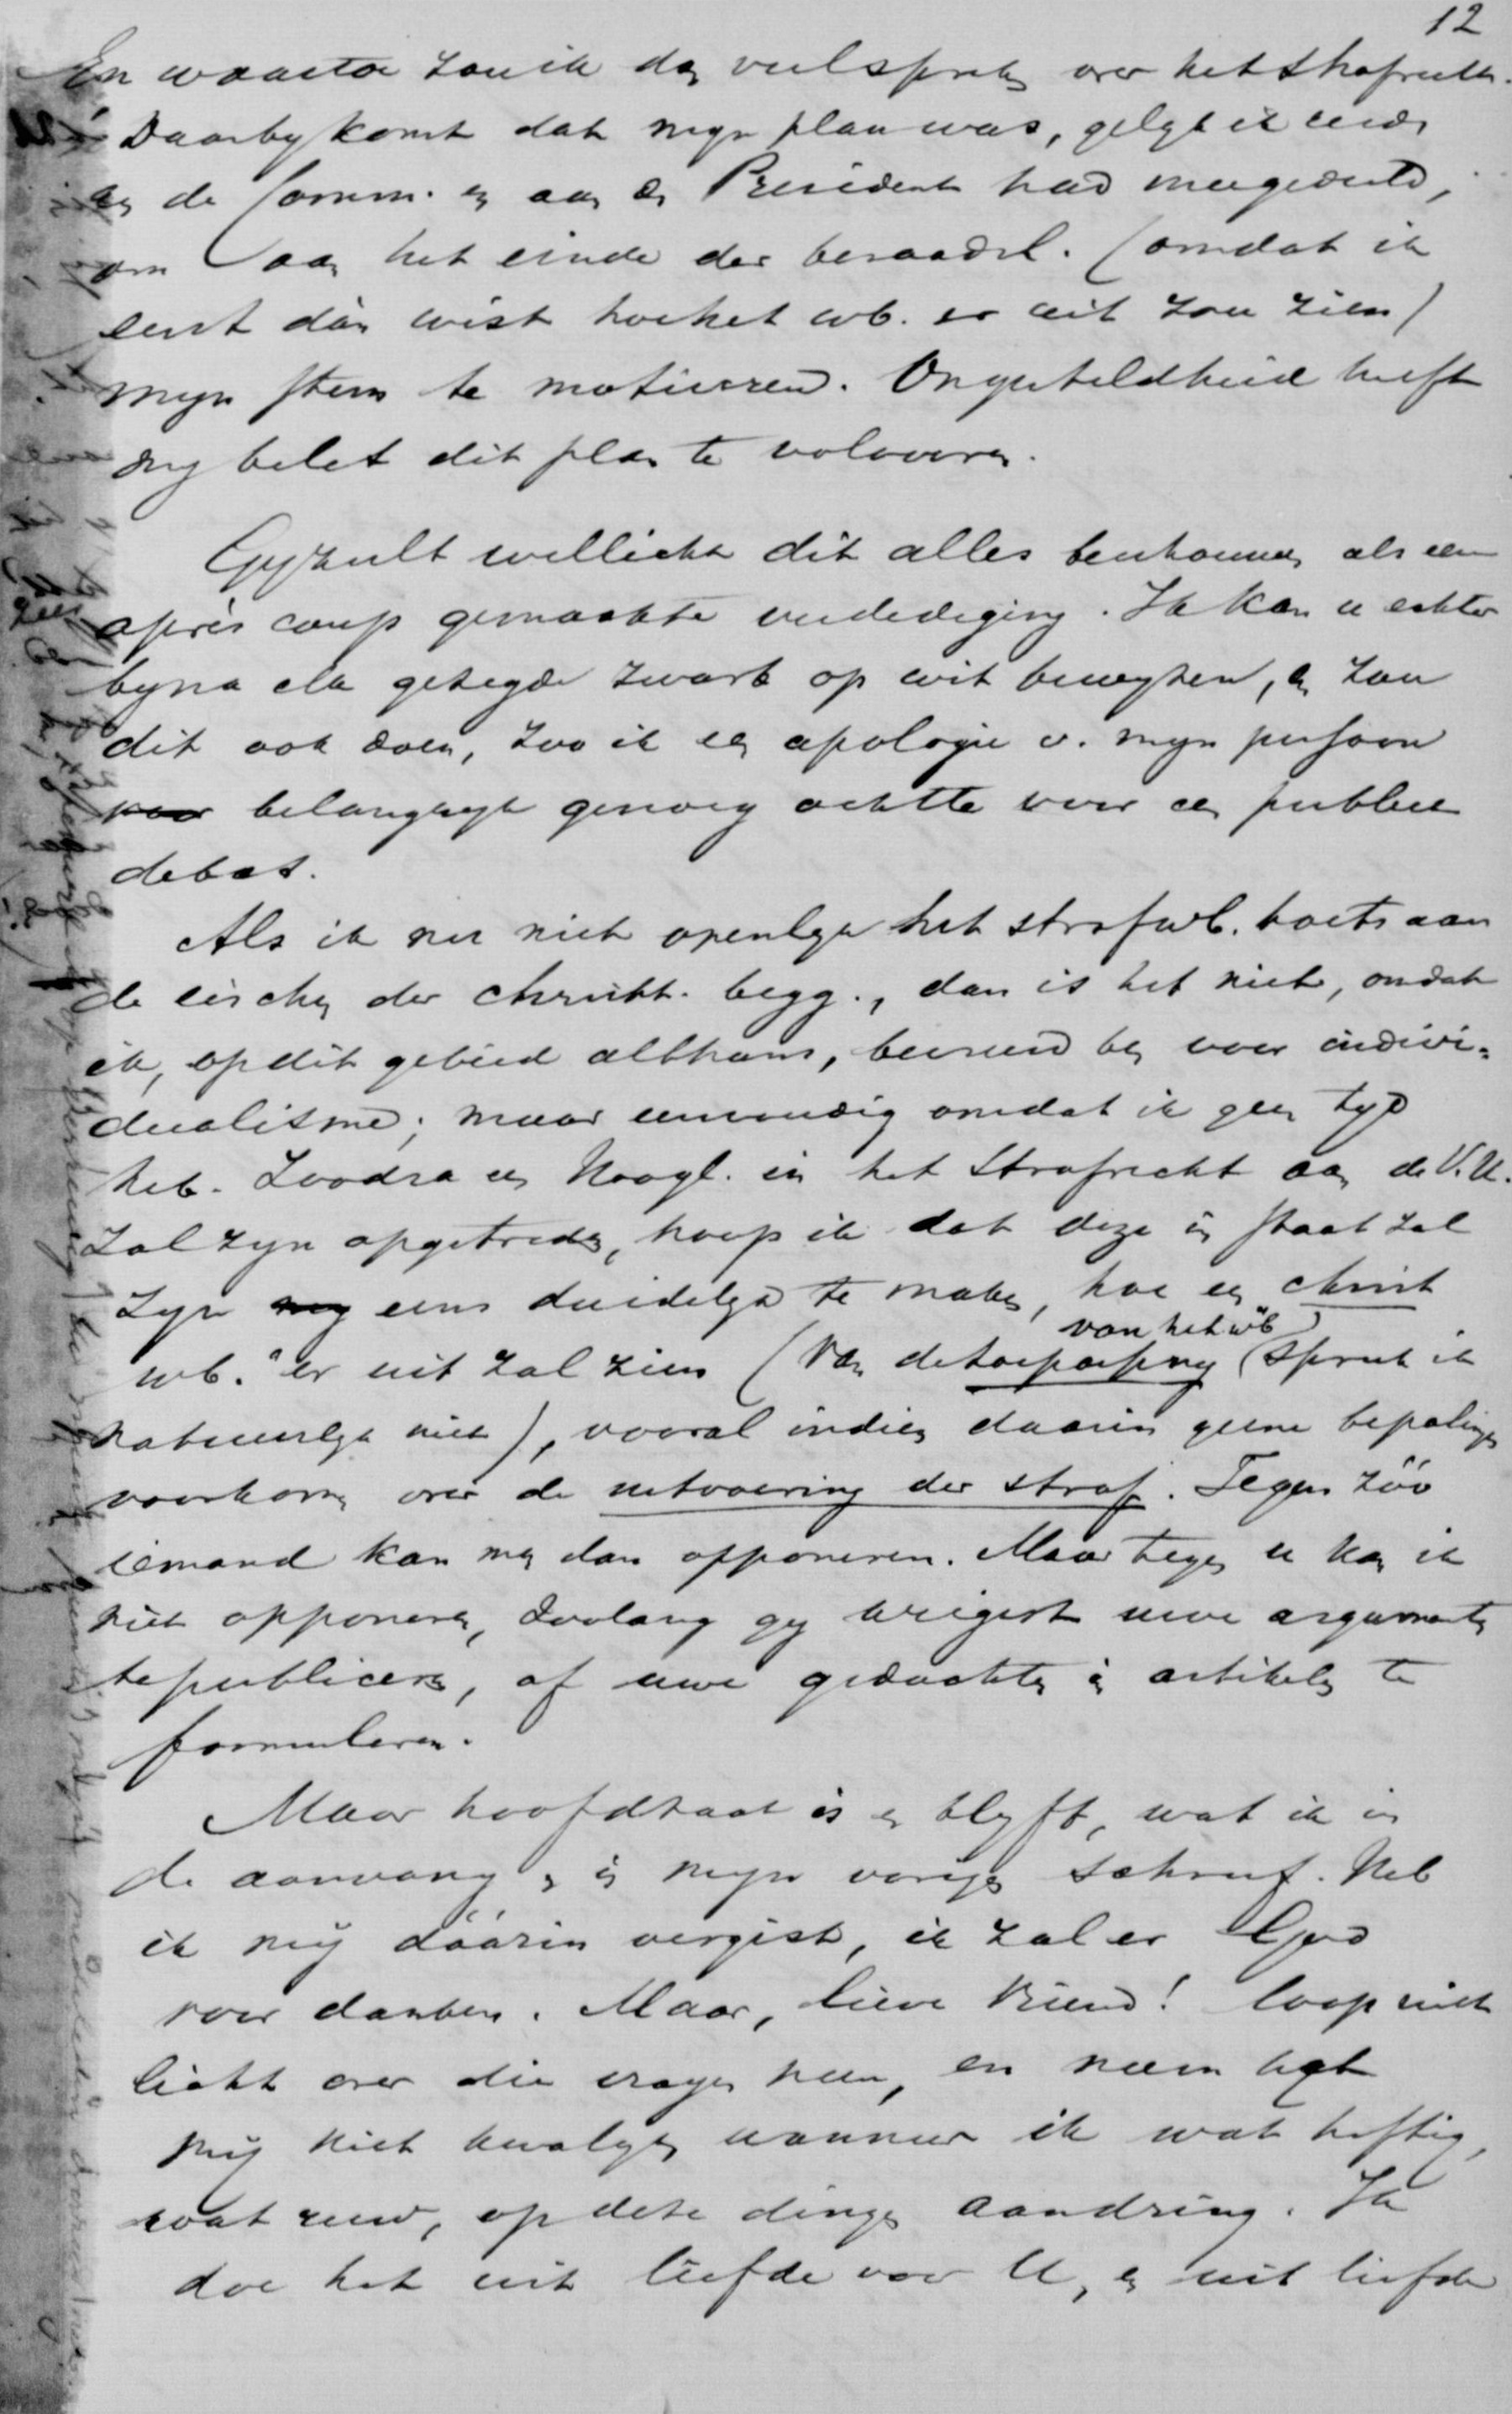 12
En waartoe zou ik dan veel spreken over het Strafrecht.
Daarby komt dat myn plan was, gelyk ik aan de
de Comm. en aan den President had meegedeeld,
om aan het einde der beraadsl. (omdat ik
eerst dán wist hoe het wb. er uit zou zien)
myn stem te motiveeren. Ongesteldheid heeft
my belet dit plan te volvoeren.
Gy zult wellicht dit alles beschouwen als een
après coup gemaakte verdediging. Ik kan u echter
byna elk gezegde zwart op wit bewyzen, en zou
dit ook doen, zoo ik een apologie v. myn persoon
belangryk genoeg achtte voor een publiek
debat.
Als ik nu niet openlyk het strafwb. toets aan
de eischen der christ. begg., dan is het niet, omdat
ik, op dit gebied althans, bevreesd ben voor indivi-
dualisme; maar eenvoudig omdat ik geen tyd
heb. Zoodra een Hoogl. in het Strafrecht aan de V.U.
zal zyn opgetreden, hoop ik dat deze in staat zal
zyn eens duidelyk te maken, hoe een christ
wb." er uit zal zien (van de toepassing van het wb spreek ik
natuurlyk niet), vooral indien daarin geene bepalingen
voorkomen over de uitvoering der straf. Tegen zóó
iemand kan men dan opponeren. Maar tegen u kan ik
niet opponeren, zoolang gy weigert uwe argumenten
te publiceren, of uwe gedachten in artikelen te
formuleren.
Maar hoofdzaak is en blyft, wat ik in
de aanvang en in myn vorigen schreef. Heb
ik my dáárin vergist, ik zal er God
voor danken. Maar, lieve Vriend! loop niet
licht over die vragen heen, en neem het
my niet kwalyk wanneer ik wat heftig,
wat ruw, op deze dingen aandring. Ik
doe het uit liefde voor U, en uit liefde